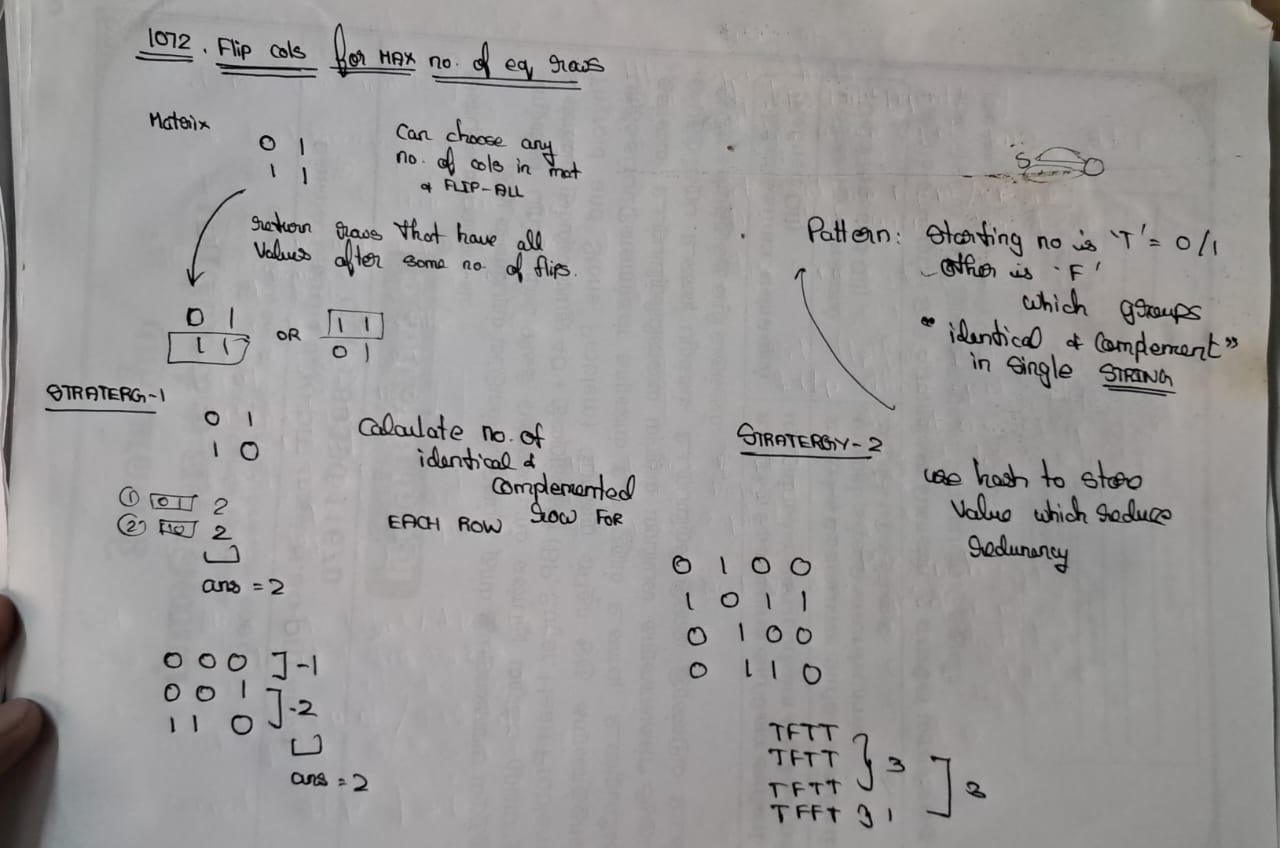 1072. Flip cols for MAX no. of eq rows
Matrix
0 1
1 1
Can choose any
no. of cols in mat
& FLIP-ALL
return rows that have all
values after some no. of flips.
0 1
1 1
OR
1 1
0 1
STRATERG-1
0 1
1 0
Calculate no. of
identical &
complemented
row FOR
EACH ROW
① 01 2
② 10 2
ans = 2
0 0 0 ]-1
0 0 1
1 1 0 ]-2
ans = 2
S O
Pattern: Starting no is 'T' = 0/1
other is 'F'
which groups
"identical & complement"
in single STRING
STRATERGY-2
use hash to store
value which reduce
redunancy
0 1 0 0
1 0 1 1
0 1 0 0
0 1 1 0
TFTT
TFTT
TFTT } 3
TFFT } 1
] 3